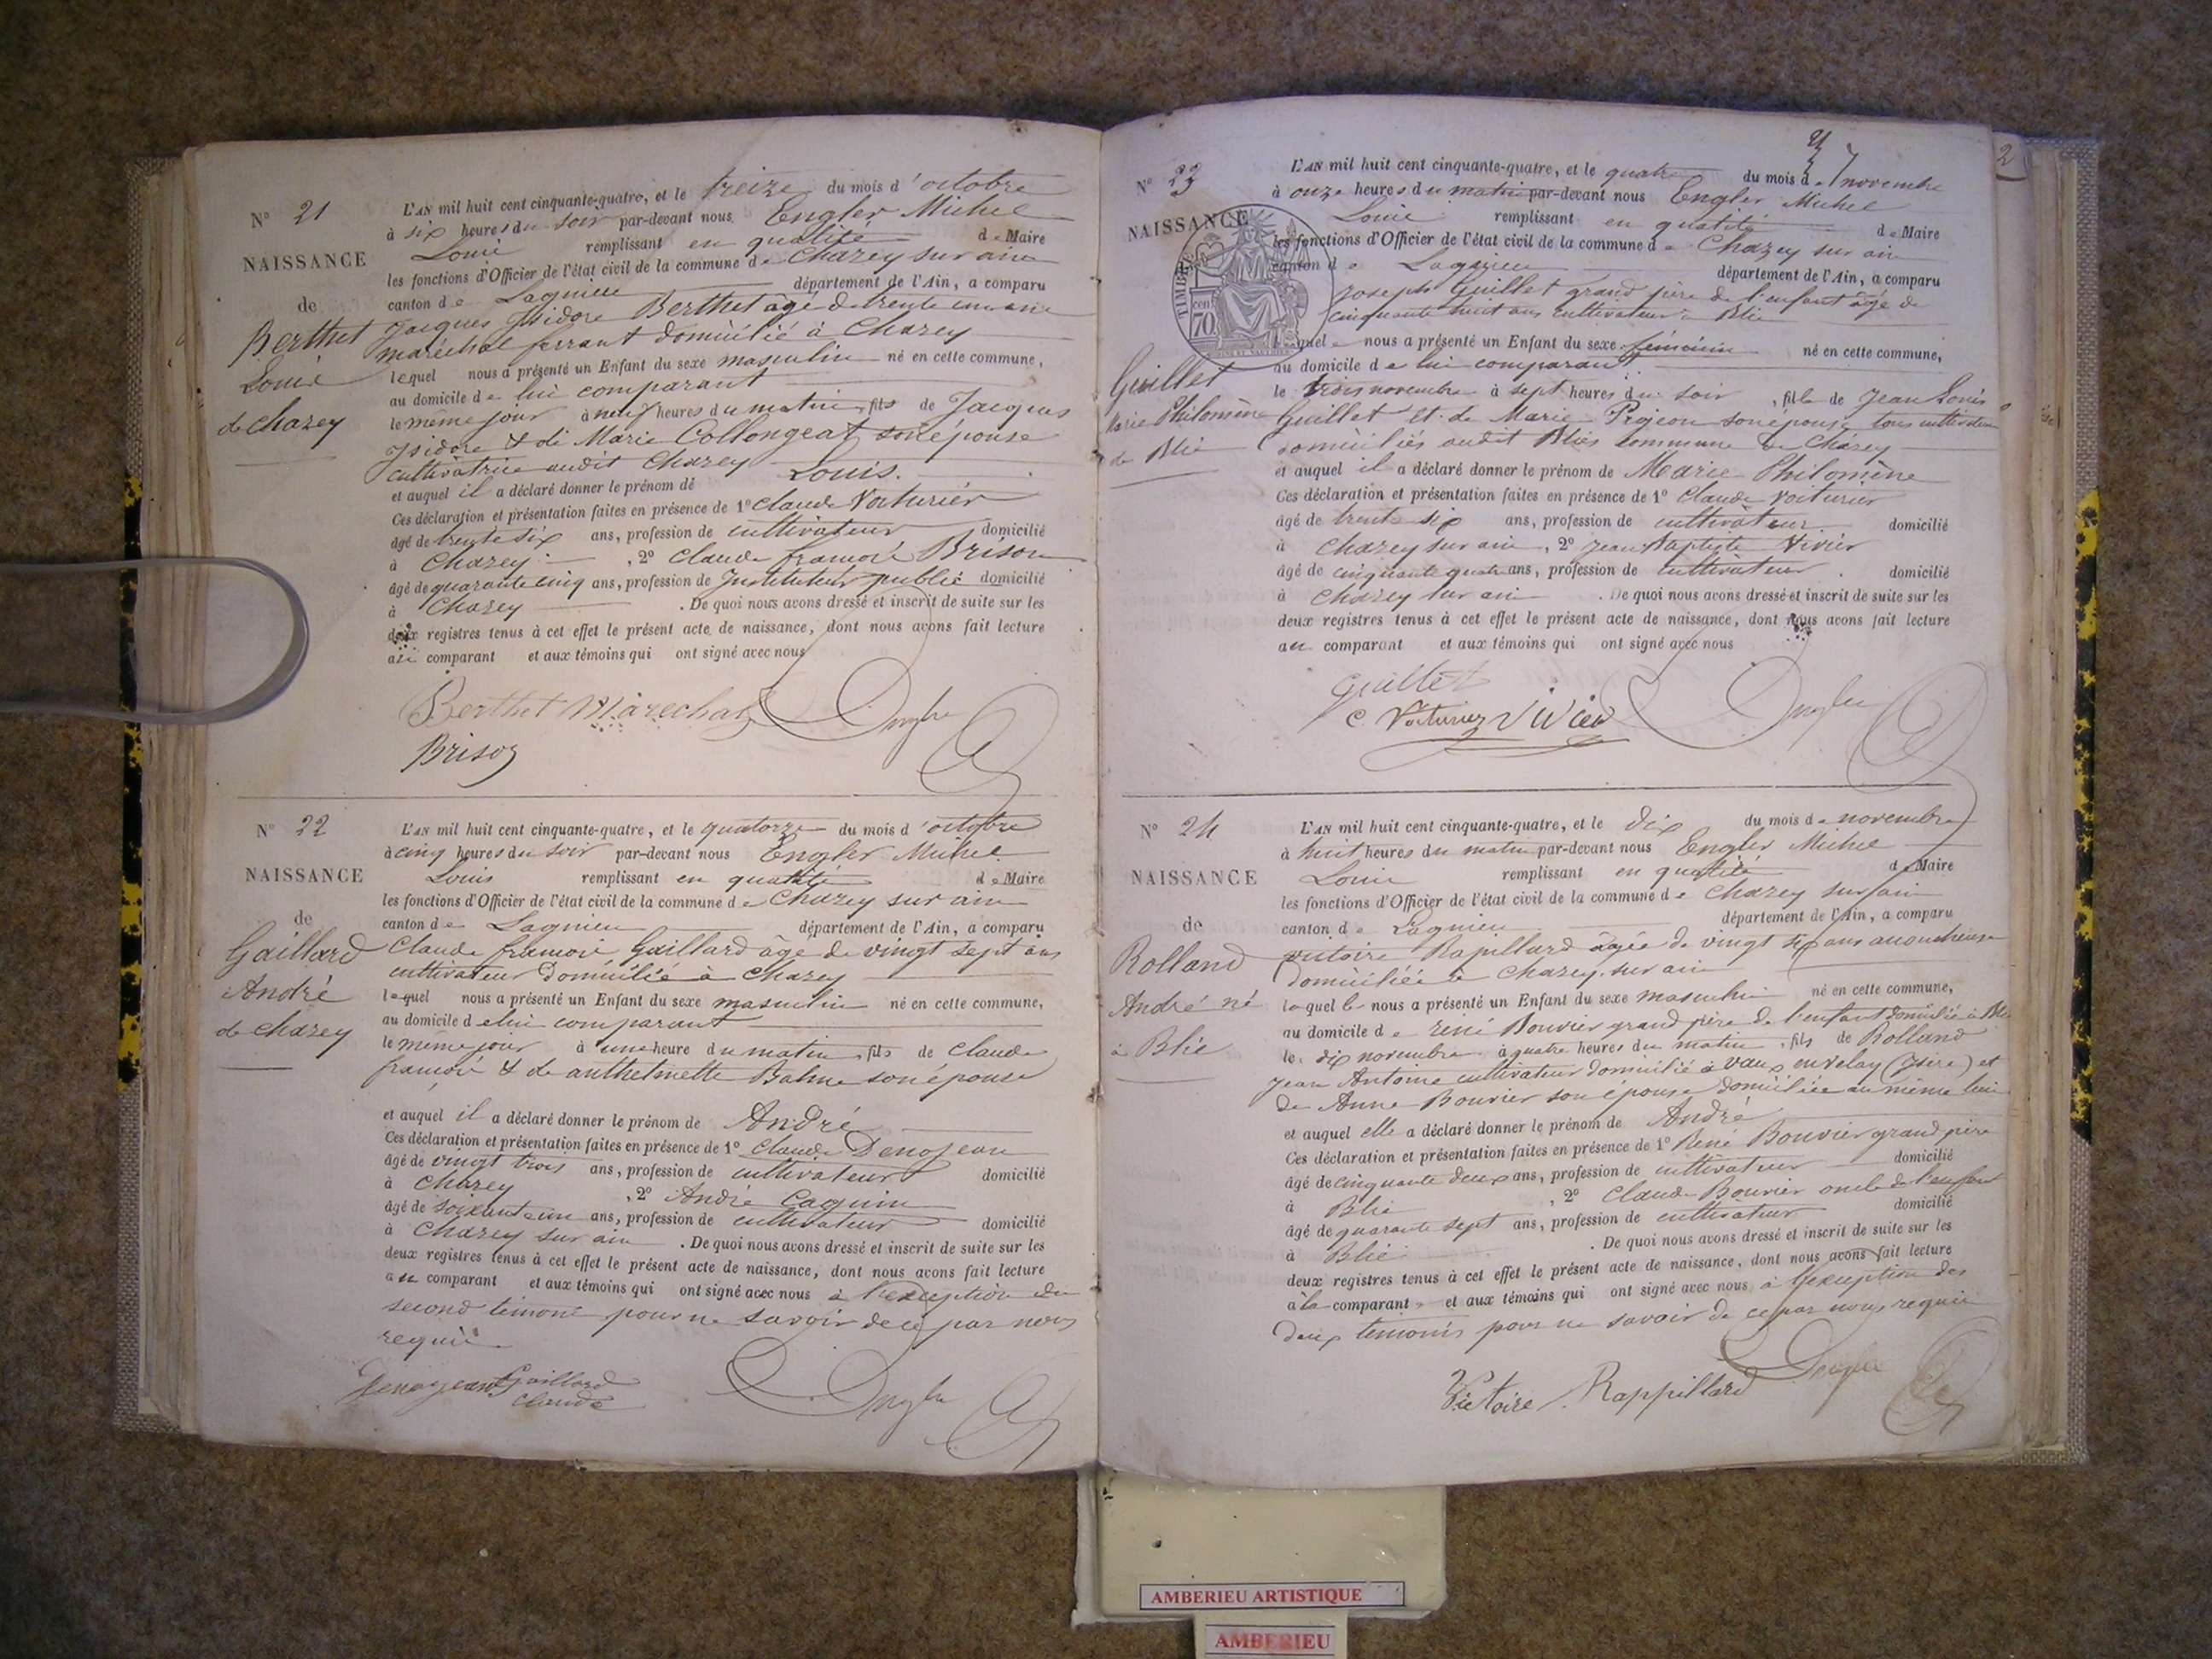 N° 21
NAISSANCE
de
Berthet
Louis
de Chazey
L'AN mil huit cent cinquante-quatre, et le treize du mois d'octobre
à six heures du soir par-devant nous Engler Michel
Louis remplissant en qualité de Maire
les fonctions d'Officier de l'état civil de la commune de Chazey sur ain
canton de Lagnieu département de l'Ain, a comparu
Jacques Isidore Berthet âgé de trente un ans
maréchal ferrant domicilié à Chazey
lequel nous a présenté un Enfant du sexe masculin né en cette commune,
au domicile de lui comparant
le même jour à neuf heures du matin, fils de Jacques
Isidore & de Marie Collongeat son épouse
cultivatrice audit Chazey
et auquel il a déclaré donner le prénom de Louis.
Ces déclaration et présentation faites en présence de 1° Claude Voiturier
âgé de trente six ans, profession de cultivateur domicilié
à Chazey, 2° Claude françois Brison
âgé de quarante cinq ans, profession de Instituteur public domicilié
à Chazey. De quoi nous avons dressé et inscrit de suite sur les
deux registres tenus à cet effet le présent acte de naissance, dont nous avons fait lecture
au comparant et aux témoins qui ont signé avec nous
Berthet Maréchal Engler
Brison
N° 22
NAISSANCE
de
Gaillard
André
de Chazey
L'AN mil huit cent cinquante-quatre, et le quatorze du mois d'octobre
à cinq heures du soir par-devant nous Engler Michel
Louis remplissant en qualité de Maire
les fonctions d'Officier de l'état civil de la commune de Chazey sur ain
canton de Lagnieu département de l'Ain, a comparu
Claude françois Gaillard âgé de vingt sept ans
cultivateur domicilié à Chazey
lequel nous a présenté un Enfant du sexe masculin né en cette commune,
au domicile de lui comparant
le même jour à une heure du matin, fils de Claude
françois & de anthelmette Balme son épouse
et auquel il a déclaré donner le prénom de André
Ces déclaration et présentation faites en présence de 1° Claude Denojean
âgé de vingt trois ans, profession de cultivateur domicilié
à Chazey, 2° André Caquin
âgé de soixante un ans, profession de cultivateur domicilié
à Chazey sur ain. De quoi nous avons dressé et inscrit de suite sur les
deux registres tenus à cet effet le présent acte de naissance, dont nous avons fait lecture
au comparant et aux témoins qui ont signé avec nous à l'exception du
second témoin pour ne savoir de ce par nous
requis
Denojean Gaillard Engler
Claude
2
N° 23
NAISSANCE
TIMBRE
cen
70
Guillet
Marie Philomène
de Blie
L'AN mil huit cent cinquante-quatre, et le quatre du mois de novembre
à onze heures du matin par-devant nous Engler Michel
Louis remplissant en qualité de Maire
les fonctions d'Officier de l'état civil de la commune de Chazey sur ain
canton de Lagnieu département de l'Ain, a comparu
Joseph Guillet grand père de l'enfant âgé de
cinquante huit ans cultivateur à Blie
lequel nous a présenté un Enfant du sexe féminin né en cette commune,
au domicile de lui comparant
le trois novembre à sept heures du soir, fille de Jean Louis
Guillet et de Marie Pigeon son épouse tous cultivateurs
domiciliés audit Blies commune de Chazey
et auquel il a déclaré donner le prénom de Marie Philomène
Ces déclaration et présentation faites en présence de 1° Claude Voiturier
âgé de trente six ans, profession de cultivateur domicilié
à Chazey sur ain, 2° Jean Baptiste Vivier
âgé de cinquante quatre ans, profession de cultivateur domicilié
à Chazey sur ain. De quoi nous avons dressé et inscrit de suite sur les
deux registres tenus à cet effet le présent acte de naissance, dont nous avons fait lecture
au comparant et aux témoins qui ont signé avec nous
Guillet
C Voiturier Vivier Engler
N° 24
NAISSANCE
de
Rolland
André né
à Blie
L'AN mil huit cent cinquante-quatre, et le dix du mois de novembre
à huit heures du matin par-devant nous Engler Michel
Louis remplissant en qualité de Maire
les fonctions d'Officier de l'état civil de la commune de Chazey sur ain
canton de Lagnieu département de l'Ain, a comparu
victoire Rapillard âgée de vingt six ans accoucheuse
domiciliée à Chazey sur ain
laquelle nous a présenté un Enfant du sexe masculin né en cette commune,
au domicile de rené Bouvier grand père de l'enfant domicilié à Blie
le dix novembre à quatre heures du matin, fils de Rolland
Jean Antoine cultivateur domicilié à vaux en velay (Isère) et
de Anne Bouvier son épouse domiciliée au même lieu
et auquel elle a déclaré donner le prénom de André
Ces déclaration et présentation faites en présence de 1° René Bouvier grand père
âgé de cinquante deux ans, profession de cultivateur domicilié
à Blie, 2° Claude Bouvier oncle de l'enfant
âgé de quarante sept ans, profession de cultivateur domicilié
à Blie. De quoi nous avons dressé et inscrit de suite sur les
deux registres tenus à cet effet le présent acte de naissance, dont nous avons fait lecture
à la comparante et aux témoins qui ont signé avec nous à l'exception des
deux témoins pour ne savoir de ce par nous requis
Victoire Rappillard Engler
AMBERIEU ARTISTIQUE
AMBERIEU